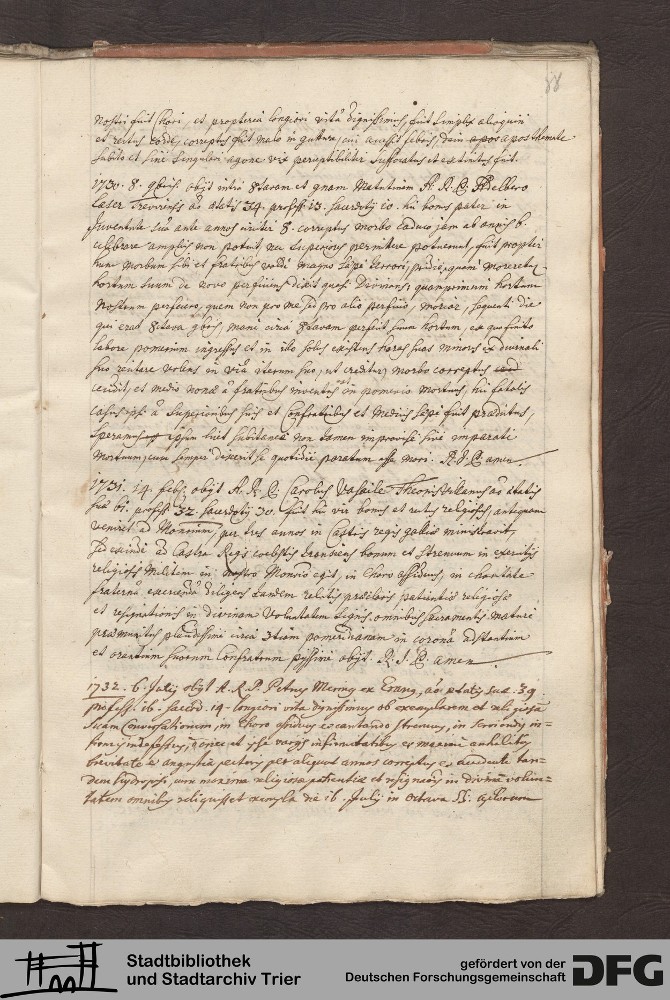 88
nostri fuit Chori, et propterea longiori vitâ dignissimus, fuit simplex alioquin
et rectus corde, correptus fuit malo in gutture, cui accessit febris, dein apostemate
subito et sine singulari agone vix perceptibiliter suffocatus et extinctus fuit.
1730. 8. 9bris obijt intra 8tavam et 9nam Matutinam A. R. P. Adelbero
Caser Trevirensis ao ætatis 34. profess. 13. sacerdotij 10. hic bonus pater in
juventute suâ ante annos circiter 8. correptus morbo caduco jam ab annis 6.
celebrare amplius non potuit nec superiores permittere potuerunt, fuit propter
hunc morbum sibi et fratribus valdè magno sæpe terrori, pridie quam moreretur
hortum suum de novo perficiens dixit quasi divinans, quamprimum hortum
nostrum perfecero, quem non pro me sed pro alio perficio, moriar, sequenti die
quæ erat 8tava 9bris, mane circa 8tavam perfecit suum hortum, ex quo finito
labore pomerium ingressus et in illo solus existens horas suas minores ex diurnali
suo recitare volens in viâ iterum suo, ut creditur, morbo correptus
cecidit, et medio nonæ à fratribus inventus est in pomerio mortuus, hic fatalis
casus ipsi à Superioribus suis et Confratribus et Medicis sæpe fuit prædictus,
speramus ipsum licet subitaneâ non tamen improvisâ sive imparatâ
mortuum, cum semper dixerit se quotidie paratum esse mori. R. I. P. amen.
1731. 14. feb. obijt A. R. P. Jacobus Vasaile Theonisvillanus ao ætatis
suæ 61. profess. 32. sacerdotij 30. fuit hic vir bonus et rectus religiosus, antequam
veniret ad Monrium, per tres annos in Castris regis galliæ ministravit,
sed exinde ad Castra Regis cœlestis transiens bonum et strenuum in exercitijs
religiosis militem in nostro Monrio egit, in Choro assiduus, in charitate
fraternâ exercendâ diligens tandem relictis præclaris patientiæ religiosæ
et resignationis in divinam voluntatem signis, omnibus sacramentis maturè
præmunitus placidissimè circa 3tiam pomeridianam in coronâ adstantium
et orantium suorum Confratrum pijssimè obijt. R. I. P. amen.
1732. 6. Julij obijt A. R. P. Petrus Merng ex Erang, ao ætatis suæ. 39
profess. 16. sacerd. 14. longiori vita dignissimus ob exemplarem et religiosam
suam Conversationem, in Choro assiduus et cantando strenuus, in
indefessus, donec et ipse varijs infirmitatibus ex maximè anhelitus
brevitate et angustiâ pectoris per aliquot annos correptus, et accedente tan-
dem hydropisi, cum maxima religiosæ patientiæ et resignaois in divinam volun-
tatem omnibus reliquisset exempla die 16. Julij in Octava SS. Aplorum
Stadtbibliothek
und Stadtarchiv Trier
gefördert von der
Deutschen Forschungsgemeinschaft
DFG